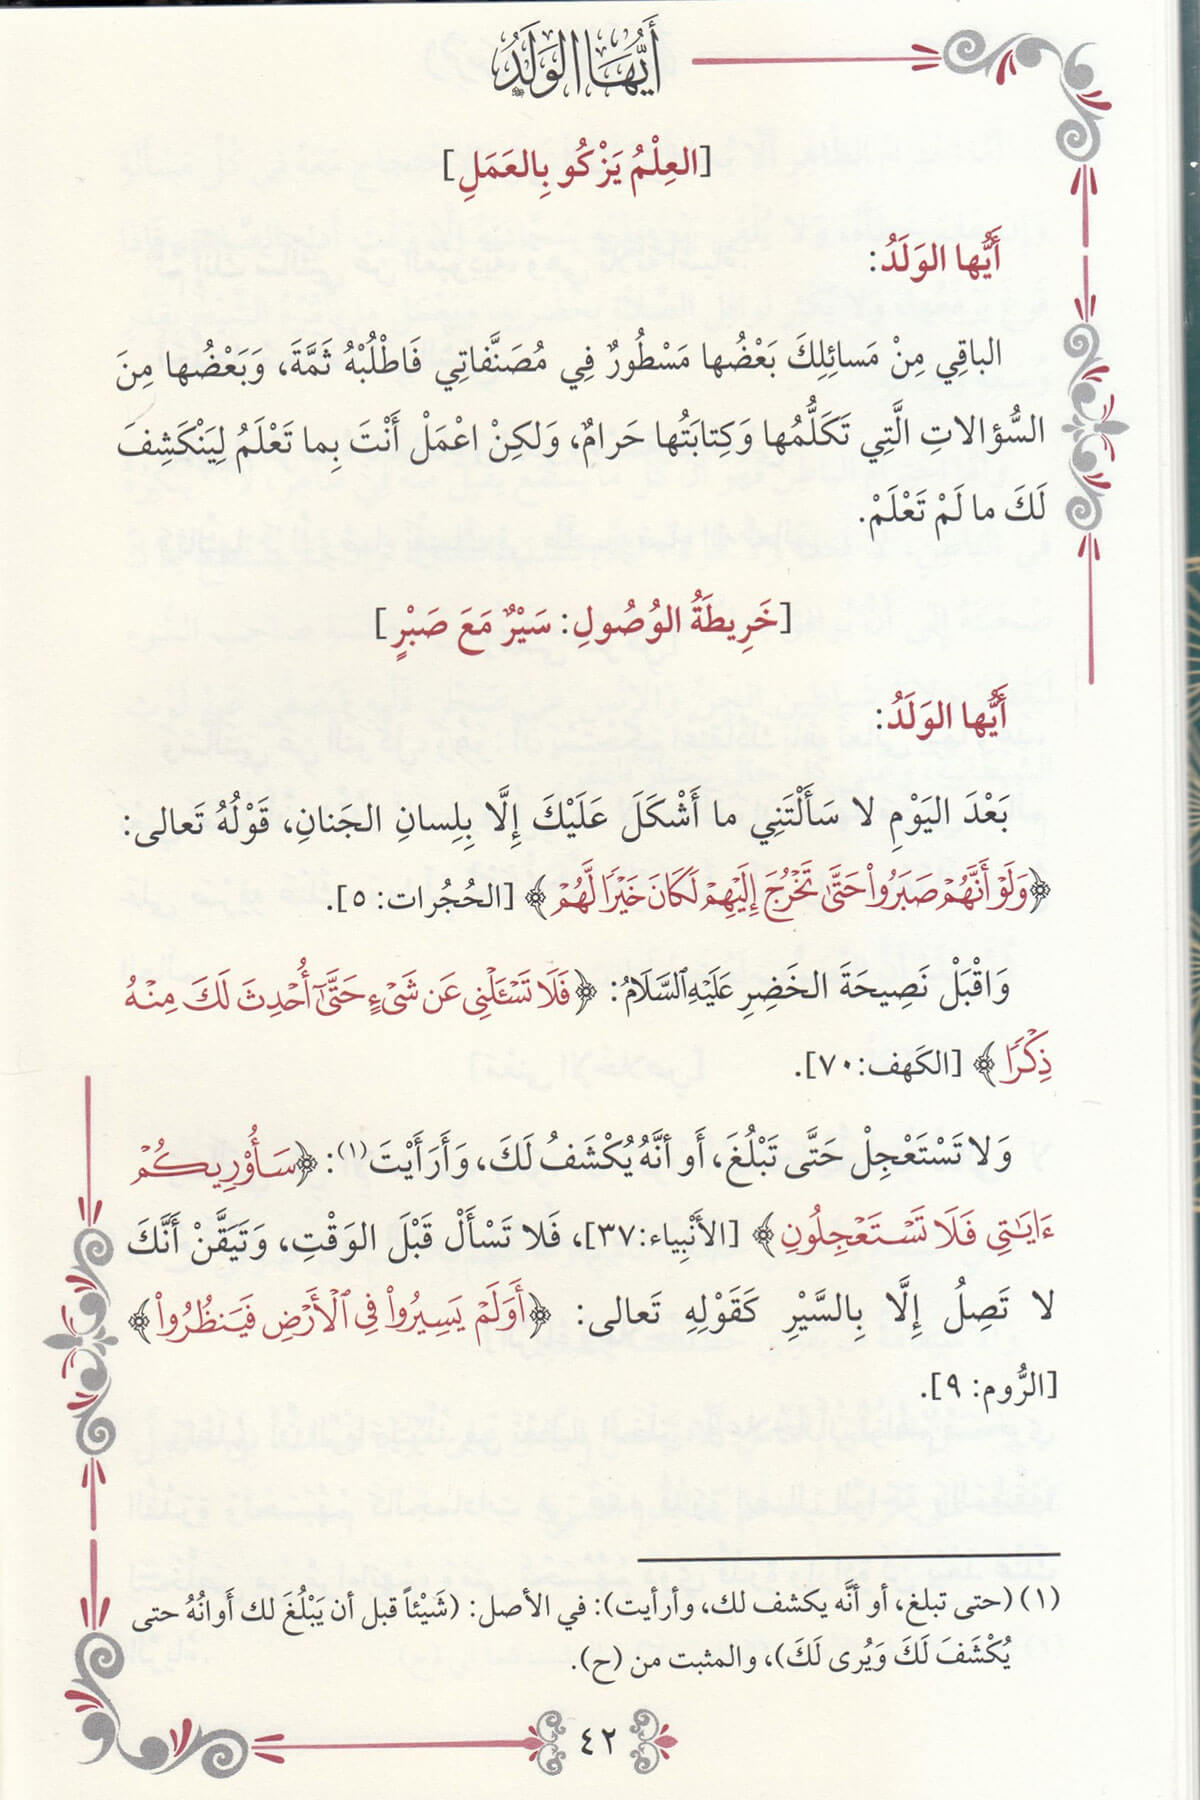 أَيُّهَا الوَلَدُ
[العِلْمُ يَزْكُو بِالعَمَلِ]
أَيُّها الوَلَدُ:
الباقِي مِنْ مَسائِلِكَ بَعْضُها مَسْطُورٌ فِي مُصَنَّفاتِي فَاطْلُبْهُ ثَمَّةَ، وَبَعْضُها مِنَ
السُّؤالاتِ الَّتِي تَكَلُّمُها وَكِتابَتُها حَرامٌ، وَلكِنْ اعْمَلْ أَنْتَ بِما تَعْلَمُ لِيَنْكَشِفَ
لَكَ ما لَمْ تَعْلَمْ.
[خَرِيطَةُ الوُصُولِ: سَيْرٌ مَعَ صَبْرٍ]
أَيُّها الوَلَدُ:
بَعْدَ اليَوْمِ لا سَأَلْتَنِي ما أَشْكَلَ عَلَيْكَ إِلَّا بِلِسانِ الجَنانِ، قَوْلُهُ تَعالى:
﴿وَلَوْ أَنَّهُمْ صَبَرُوا۟ حَتَّىٰ تَخْرُجَ إِلَيْهِمْ لَكَانَ خَيْرًا لَّهُمْ﴾ [الحُجُرات: ٥].
وَاقْبَلْ نَصِيحَةَ الخَضِرِ عَلَيْهِ السَّلَامُ: ﴿فَلَا تَسْـَٔلْنِى عَن شَىْءٍ حَتَّىٰٓ أُحْدِثَ لَكَ مِنْهُ
ذِكْرًا﴾ [الكَهف: ٧٠].
وَلا تَسْتَعْجِلْ حَتَّى تَبْلُغَ، أَو أنَّهُ يُكْشَفُ لَكَ، وَأَرَأَيْتَ(١): ﴿سَأُو۟رِيكُمْ
ءَايَـٰتِى فَلَا تَسْتَعْجِلُونِ﴾ [الأَنْبِياء: ٣٧]، فَلا تَسْأَلْ قَبْلَ الوَقْتِ، وَتَيَقَّنْ أَنَّكَ
لا تَصِلُ إِلَّا بِالسَّيْرِ كَقَوْلِهِ تَعالى: ﴿أَوَلَمْ يَسِيرُوا۟ فِى ٱلْأَرْضِ فَيَنظُرُوا۟﴾
[الرُّوم: ٩].
(١) (حتى تبلغ، أو أنَّه يكشف لك، وأرأيت): في الأصل: (شَيْئاً قبل أن يَبْلُغَ لك أَوانُهُ حتى
يُكْشَفَ لَكَ وَيُرى لَكَ)، والمثبت من (ح).
٤٢